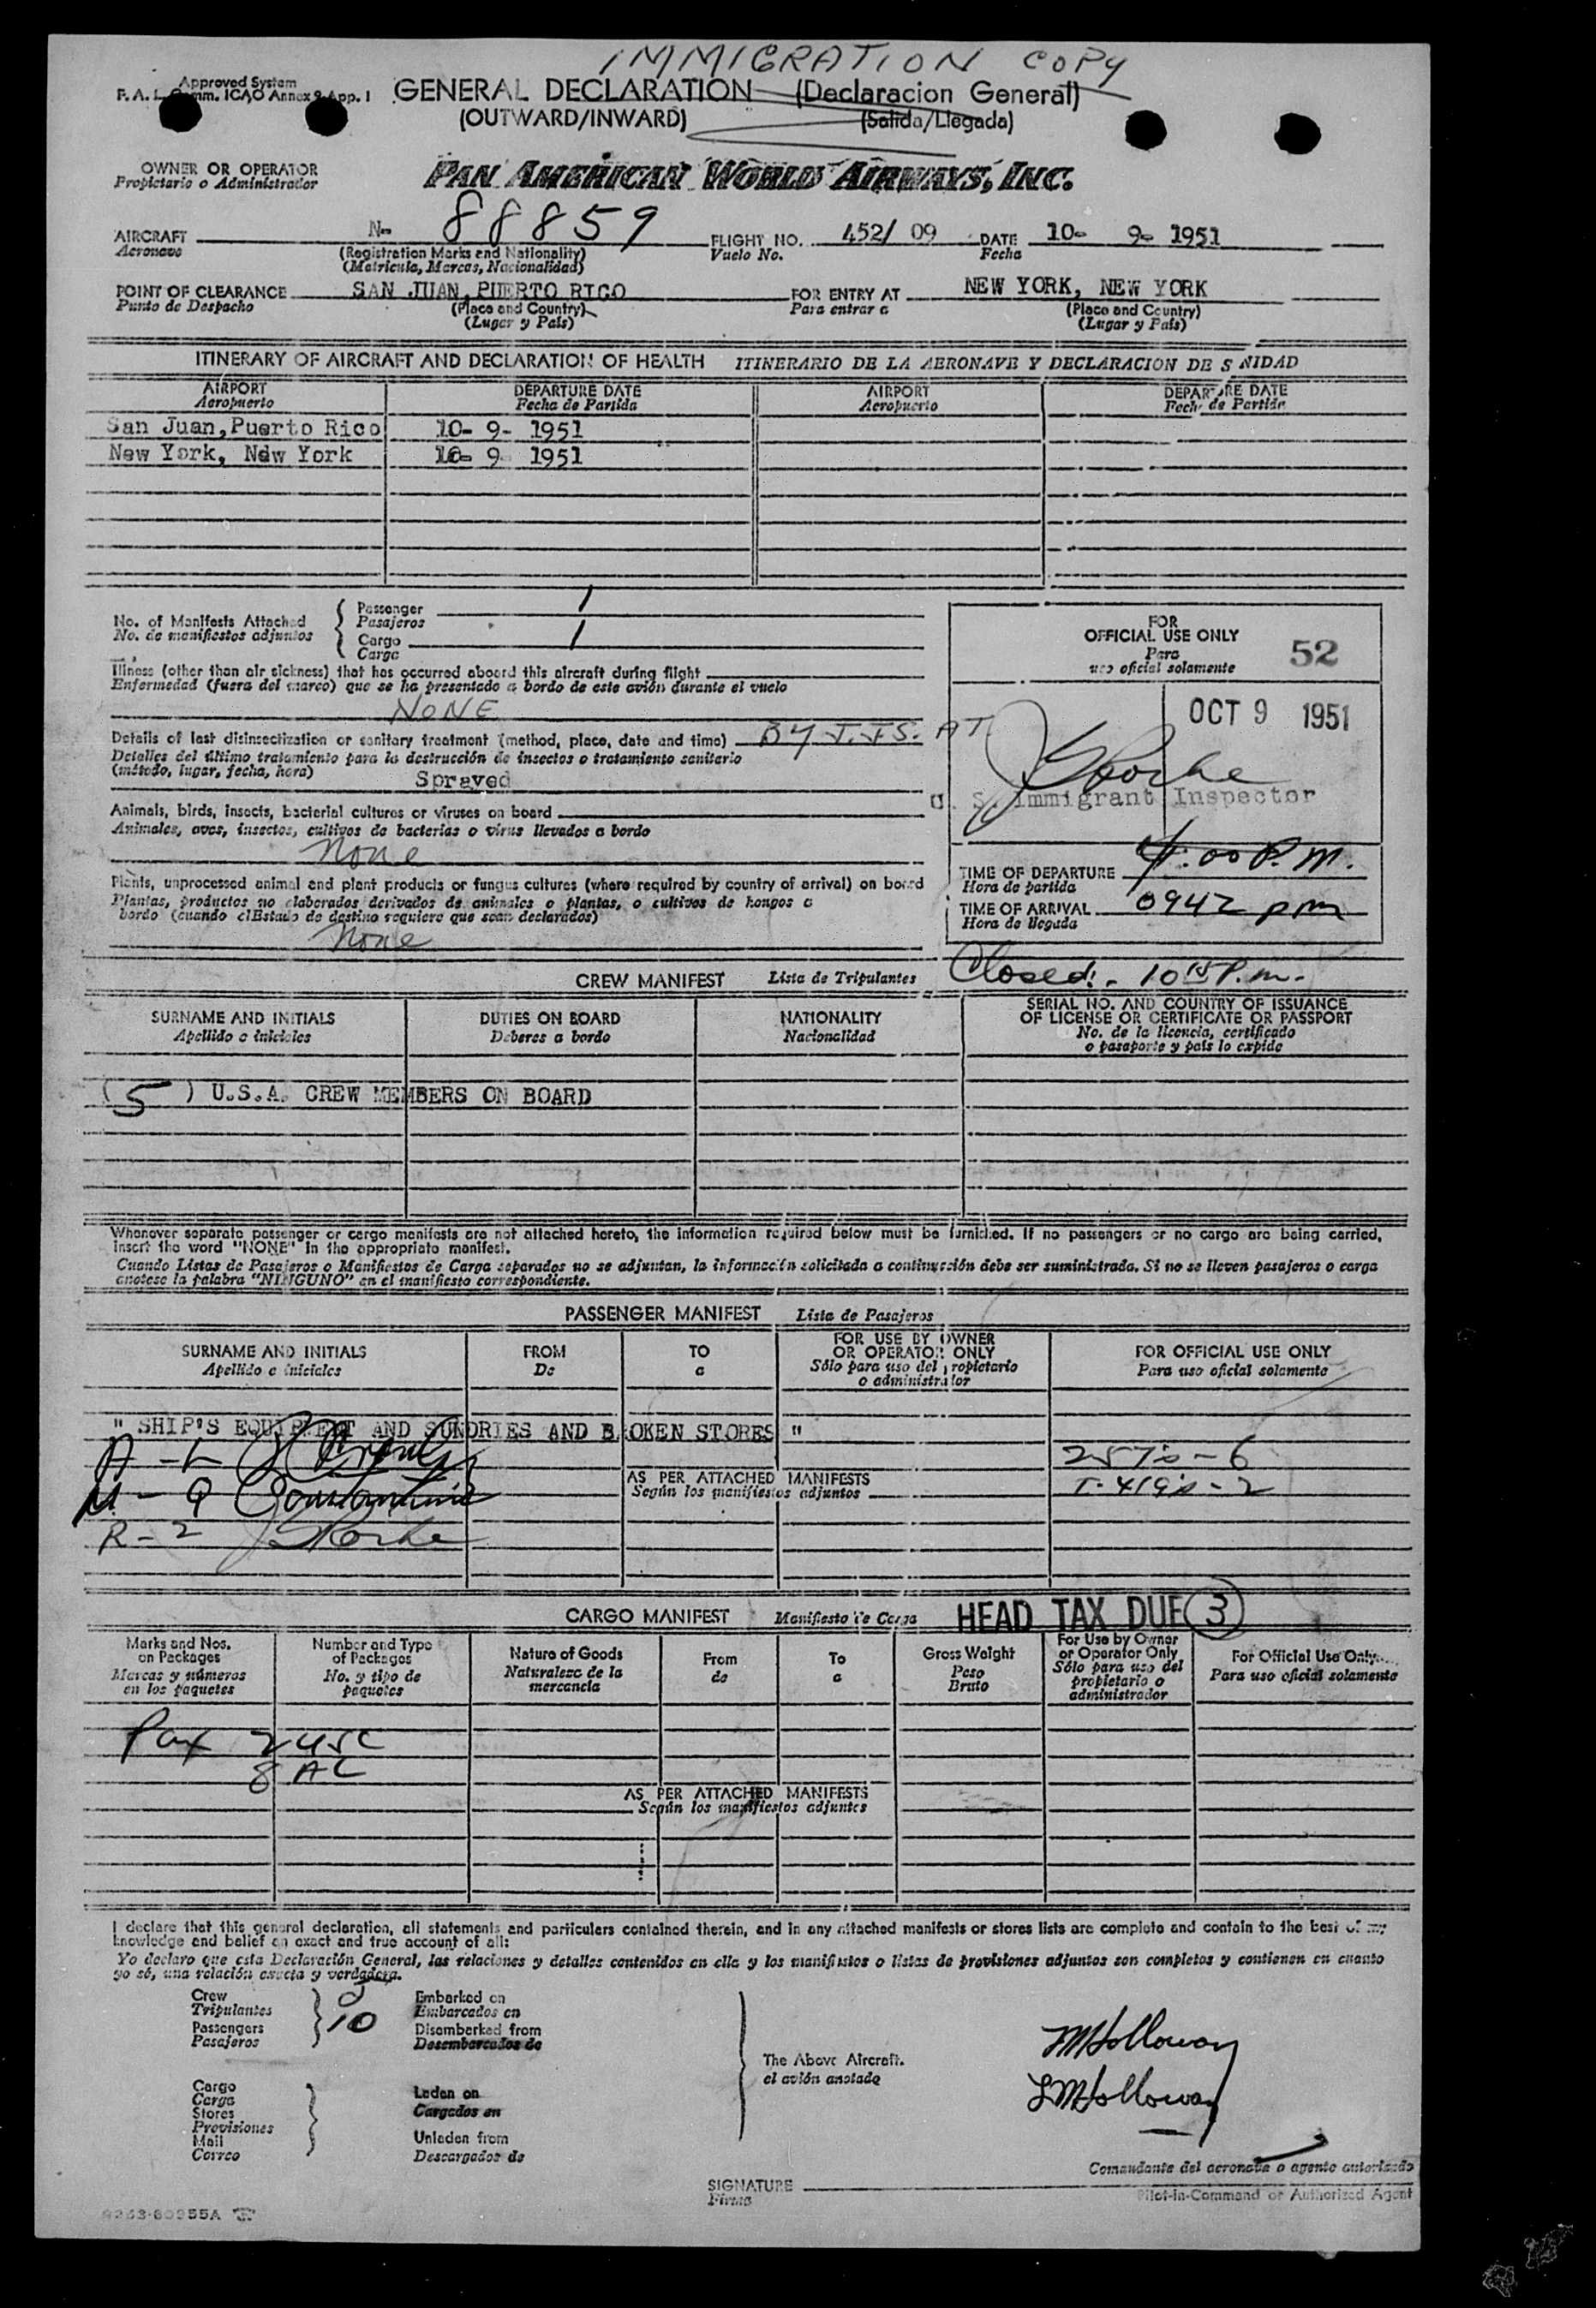 IMMIGRATION COPY
Approved System
F. A. L. Comm. ICAO Annex 9 App. 1
GENERAL DECLARATION (Declaracion General)
(OUTWARD/INWARD) (Salida/Llegada)
OWNER OR OPERATOR
Propietario o Administrador
PAN AMERICAN WORLD AIRWAYS, INC.
AIRCRAFT N- 88859 FLIGHT NO. 452/ 09 DATE 10- 9- 1951
Aeronave (Registration Marks and Nationality) Vuelo No. Fecha
(Matricula, Marcas, Nacionalidad)
POINT OF CLEARANCE SAN JUAN, PUERTO RICO FOR ENTRY AT NEW YORK, NEW YORK
Punto de Despacho (Place and Country) Para entrar a (Place and Country)
(Lugar y País) (Lugar y País)
ITINERARY OF AIRCRAFT AND DECLARATION OF HEALTH ITINERARIO DE LA AERONAVE Y DECLARACION DE S NIDAD
AIRPORT DEPARTURE DATE AIRPORT DEPARTURE DATE
Aeropuerto Fecha de Partida Aeropuerto Fecha de Partida
San Juan, Puerto Rico 10- 9- 1951
New York, New York 10- 9- 1951
No. of Manifests Attached
No. de manifiestos adjuntos
Passenger 1
Pasajeros
Cargo 1
Carga
Illness (other than air sickness) that has occurred aboard this aircraft during flight
Enfermedad (fuera del mareo) que se ha presentado a bordo de este avión durante el vuelo
NONE
Details of last disinsectization or sanitary treatment (method, place, date and time) By AT
Detalles del último tratamiento para la destrucción de insectos o tratamiento sanitario
(método, lugar, fecha, hora) Sprayed
Animals, birds, insects, bacterial cultures or viruses on board
Animales, aves, insectos, cultivos de bacterias o virus llevados a bordo
None
Plants, unprocessed animal and plant products or fungus cultures (where required by country of arrival) on board
Plantas, productos no elaborados derivados de animales o plantas, o cultivos de hongos a
bordo (cuando el Estado de destino requiere que sean declarados)
None
FOR
OFFICIAL USE ONLY 52
Para
uso oficial solamente
OCT 9 1951
U. S. Immigrant Inspector
TIME OF DEPARTURE 4:00 P.M.
Hora de partida
TIME OF ARRIVAL 0942 pm
Hora de llegada
Closed:- 10 15 P.m.
CREW MANIFEST Lista de Tripulantes
SURNAME AND INITIALS DUTIES ON BOARD NATIONALITY SERIAL NO. AND COUNTRY OF ISSUANCE
OF LICENSE OR CERTIFICATE OR PASSPORT
Apellido e iniciales Deberes a bordo Nacionalidad No. de la licencia, certificado
o pasaporte y país lo expide
(5) U.S.A. CREW MEMBERS ON BOARD
Whenever separate passenger or cargo manifests are not attached hereto, the information required below must be furnished. If no passengers or no cargo are being carried,
insert the word "NONE" in the appropriate manifest.
Cuando Listas de Pasajeros o Manifiestos de Carga separados no se adjuntan, la información solicitada a continuación debe ser suministrada. Si no se lleven pasajeros o carga
anotese la palabra "NINGUNO" en el manifiesto correspondiente.
PASSENGER MANIFEST Lista de Pasajeros
SURNAME AND INITIALS FROM TO FOR USE BY OWNER
OR OPERATOR ONLY FOR OFFICIAL USE ONLY
Apellido e iniciales De a Sólo para uso del propietario
o administrador Para uso oficial solamente
" SHIP'S EQUIPMENT AND SUNDRIES AND BROKEN STORES "
257's - 6
AS PER ATTACHED MANIFESTS
Según los manifiestos adjuntos
T-419's - 2
R - 2
CARGO MANIFEST Manifiesto de Carga HEAD TAX DUE 3
Marks and Nos.
on Packages
Marcas y números
en los paquetes
Number and Type
of Packages
No. y tipo de
paquetes
Nature of Goods
Naturaleza de la
mercancía
From
de
To
a
Gross Weight
Peso
Bruto
For Use by Owner
or Operator Only
Sólo para uso del
propietario o
administrador
For Official Use Only
Para uso oficial solamente
Pax 2 USC
8 AL
AS PER ATTACHED MANIFESTS
Según los manifiestos adjuntos
I declare that this general declaration, all statements and particulars contained therein, and in any attached manifests or stores lists are complete and contain to the best of my
knowledge and belief an exact and true account of all:
Yo declaro que esta Declaración General, las relaciones y detalles contenidos en ella y los manifiestos o listas de provisiones adjuntos son completos y contienen en cuanto
yo sé, una relación exacta y verdadera.
Crew 5
Tripulantes
Passengers 10
Pasajeros
Embarked on
Embarcados en
Disembarked from
Desembarcados de
Cargo
Carga
Stores
Provisiones
Mail
Correo
Laden on
Cargados en
Unladen from
Descargados de
The Above Aircraft.
el avión anotado
MHolloway
LMHolloway
Comandante del aeronave o agente autorizado
SIGNATURE
Firma
Pilot-in-Command or Authorized Agent